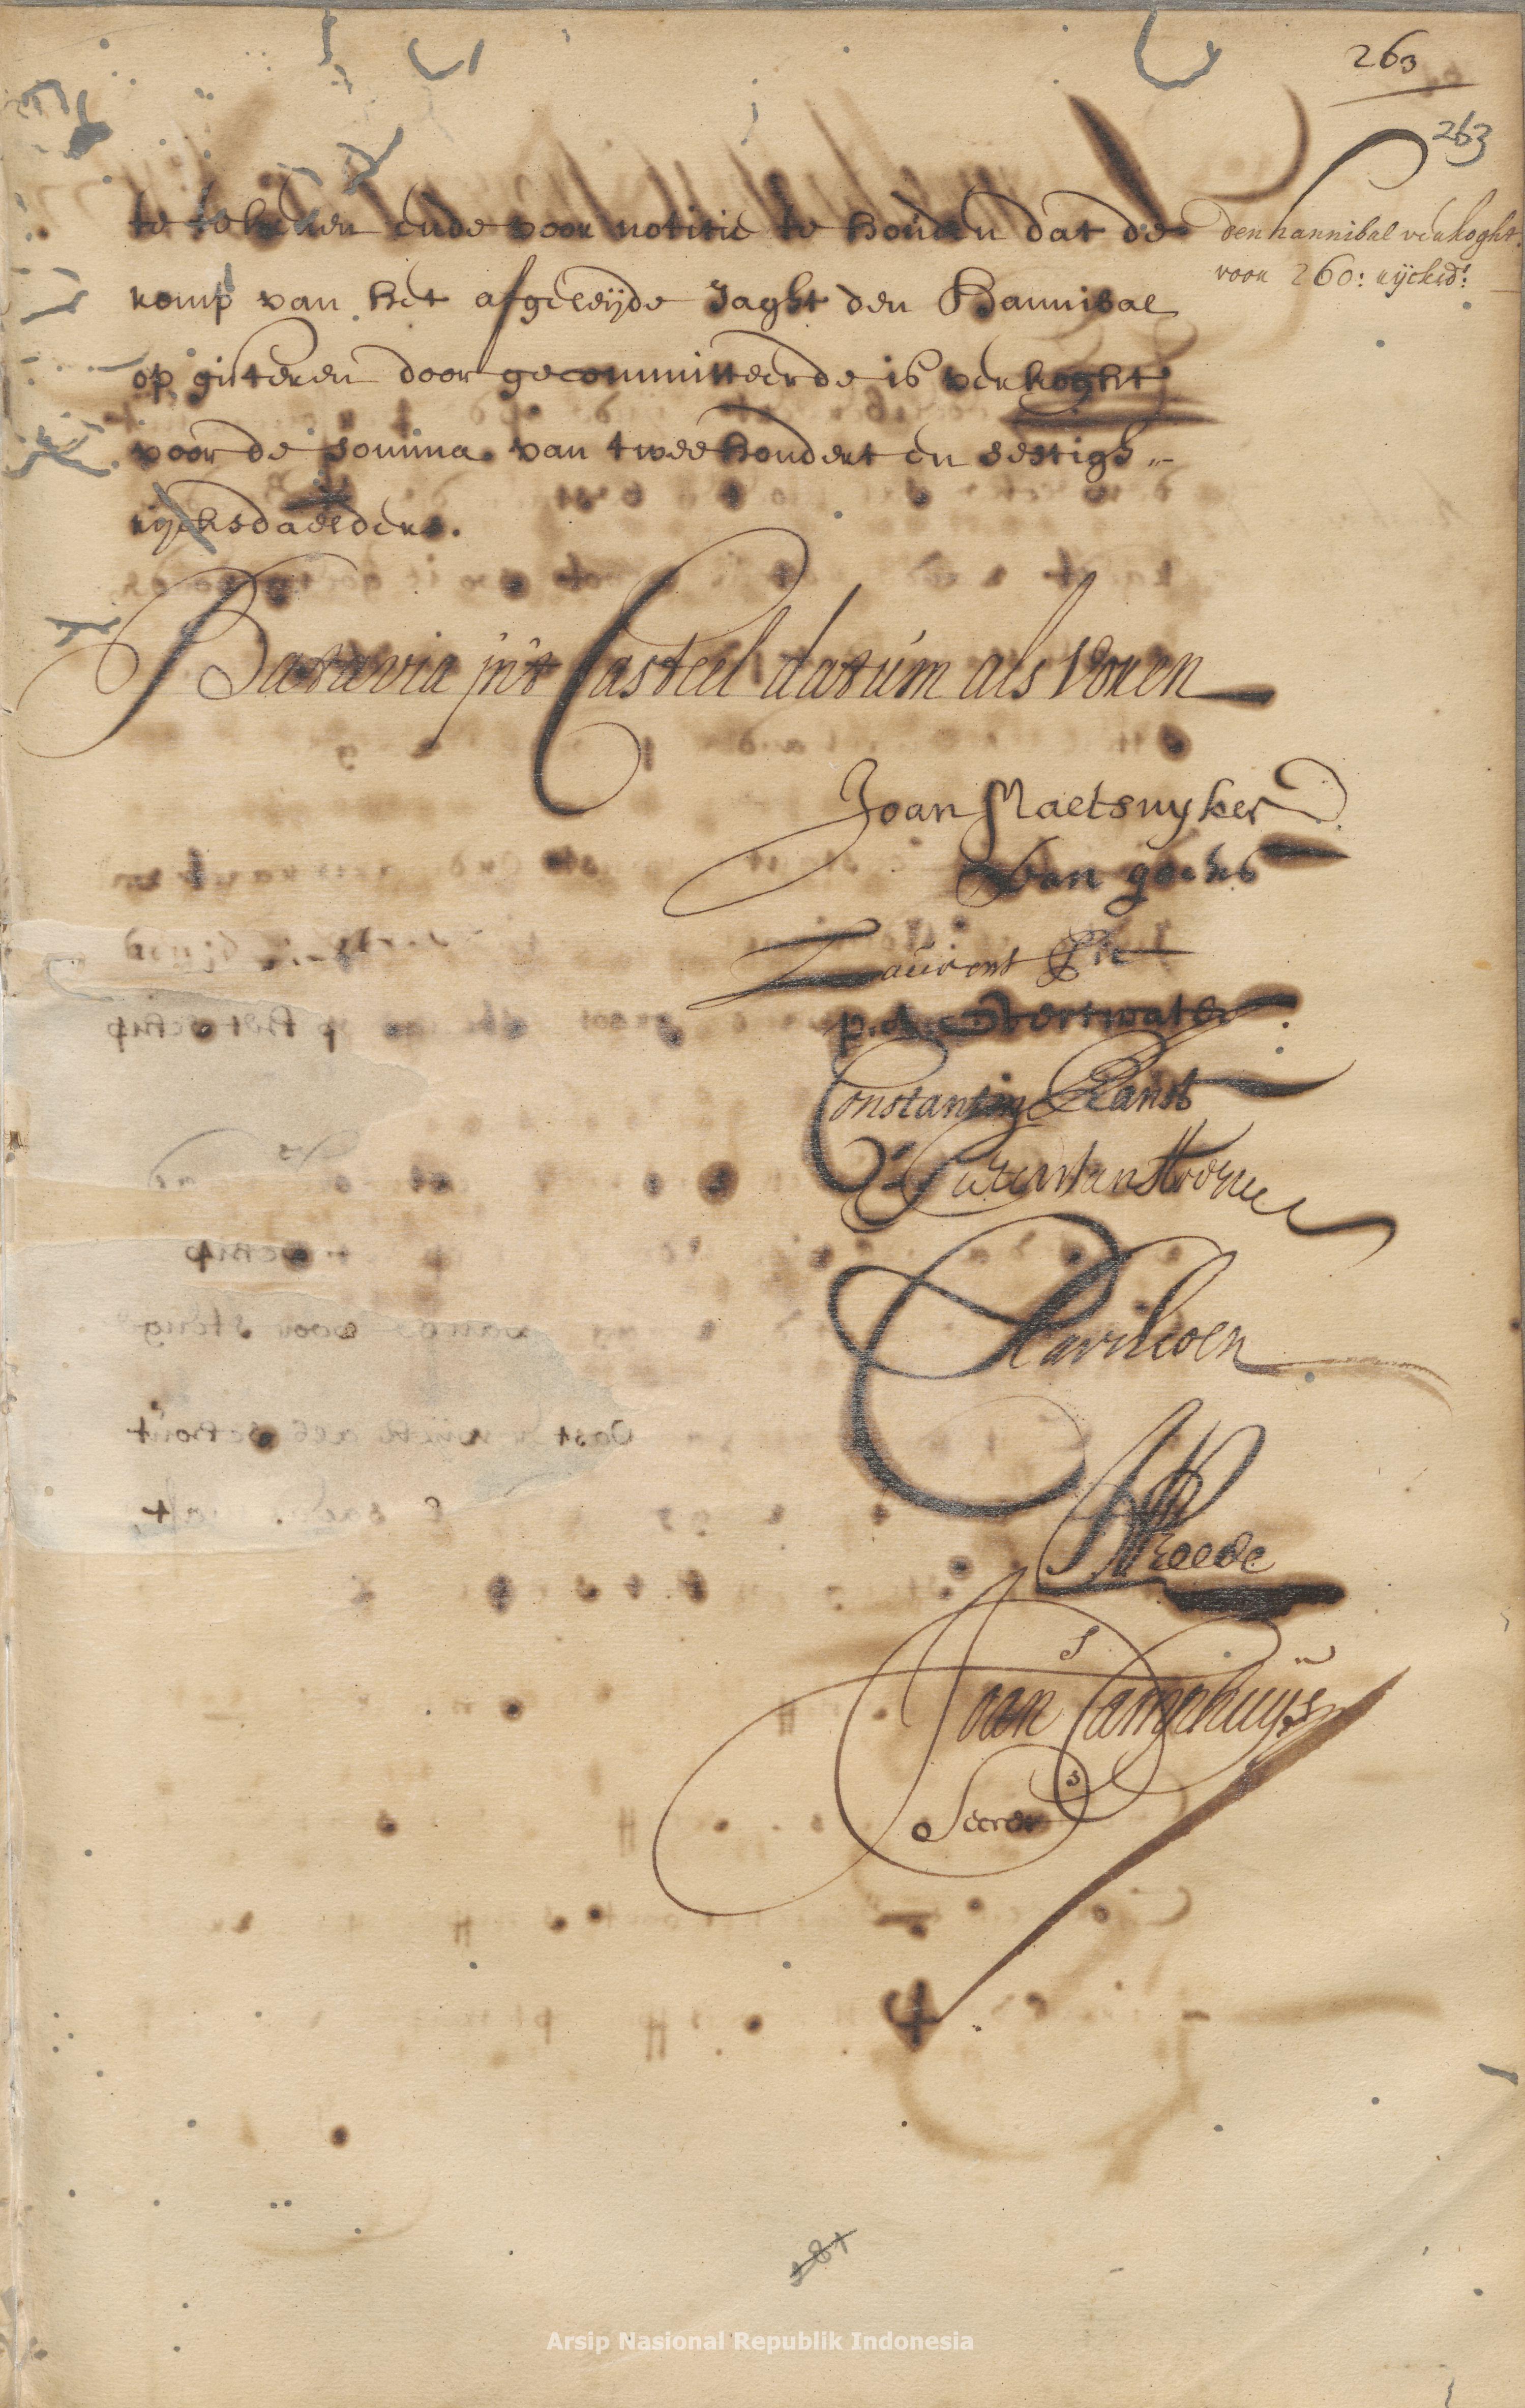 263
263
te tekenen ende voor notitie te houden dat de
romp van het afgeleijde Jaght den Hannibal
op gisteren door gecommitteerde is verkoght
voor de somma van twee hondert en sestigh
rijcksdaelders.
den hannibal verkoght
voor 260: rijcksd:s
Batavia in't Casteel datum als Voren
Joan Maetsuyker
Van goens
Laurens Pit
p. A. Overtwater
Constantin Ranst
Pavilioen
Joan Camphuijs
Secrets
181
Arsip Nasional Republik Indonesia